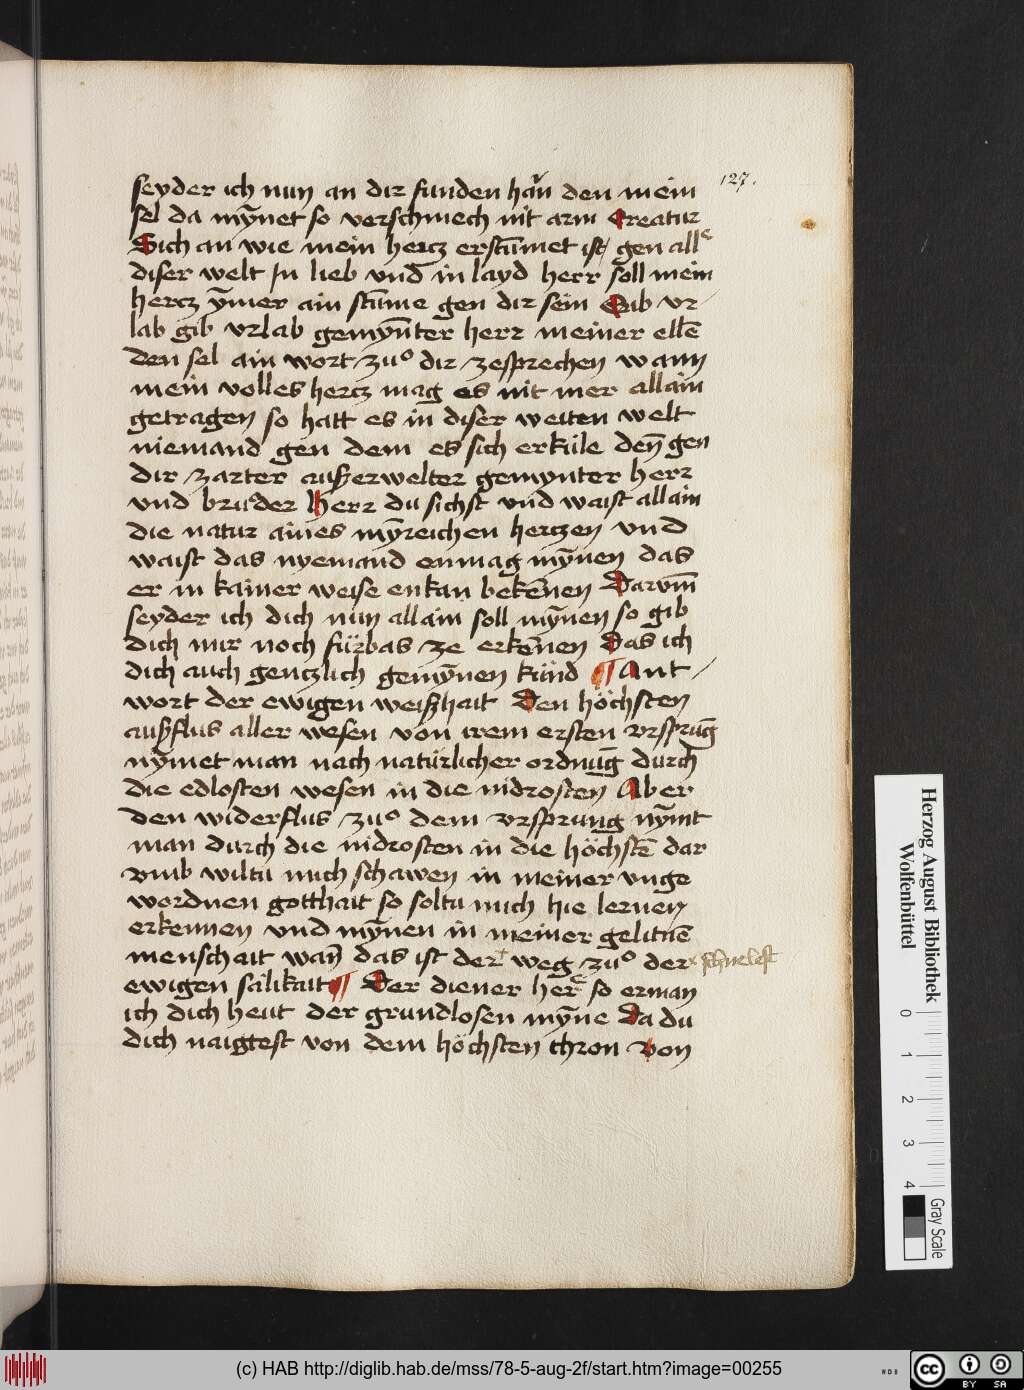 127.
seyder ich nun an dir funden hān den mein
sel da mȳnet so verschmech nit arm Creatur
Sich an wie mein hercz erstūmet ist gen alle
diser welt Jn lieb vnd in layd herr soll mein
hercz ȳmer ain stūme gen dir sein Gib vr-
lab gib vrlab gemȳnter herr meiner ellē
den sel ain wort zuͦ dir zesprechen wann
mein volles hercz mag es nit mer allain
getragen so hatt es in diser weiten welt
niemand gen dem es sich erkule deñ gen
dir zarter außerwelter gemynter herr
vnd bruͦder herr du sichst vnd waist allain
die natur aines mȳreichen herczen vnd
waist das nyemand enmag mȳnen das
er in kainer weise enkan bekēnen Darvm̄
seyder ich dich nun allain soll mȳnen so gib
dich mir noch fürbas ze erkēnen das ich
dich auch genczlich gemȳnen künd ¶ Ant-
wort der ewigen weißhait Den höchsten
außflus aller wesen von irem ersten vrsprūg
nȳmet man nach natürlicher ordnūg durch
die edlosten wesen in die nidrosten Aber
den widerflus zuͦ dem vrsprung nȳmt
man durch die nidrosten in die höchstē dar
vmb wiltu mich schawen in meiner vnge
wordnen gotthait so soltu mich hie lernen
erkennen vnd mȳnen in meiner gelitnē
menschait wañ das ist der weg zuͦ der
schnelest
ewigen sälikait ¶ Der diener herre so erman
ich dich heut der grundlosen mȳne Da du
dich naigtest von dem höchsten thron von
Herzog August Bibliothek
Wolfenbüttel
0 1 2 3 4
Gray Scale
(c) HAB http://diglib.hab.de/mss/78-5-aug-2f/start.htm?image=00255
cc BY SA